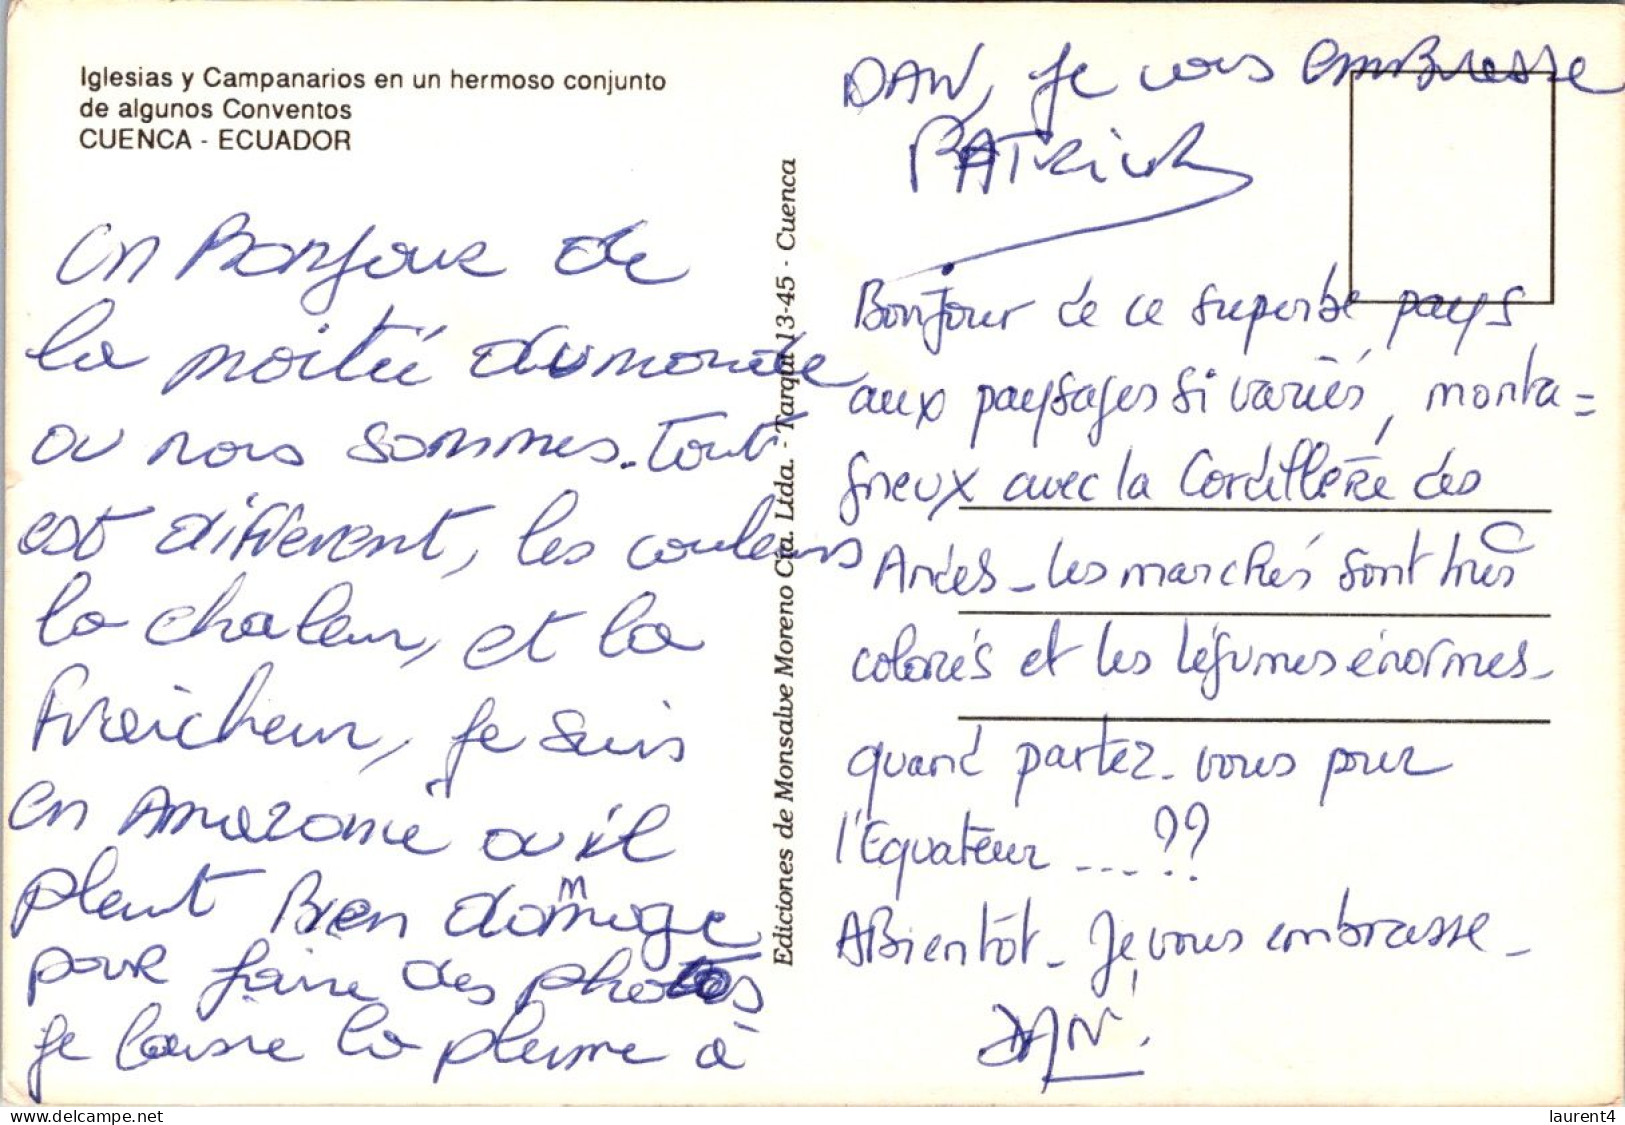 Iglesias y Campanarios en un hermoso conjunto
de algunos Conventos
CUENCA - ECUADOR
un Bonjour de
la moitié du monde
ou nous sommes. Tout
est différent, les couleurs
la chaleur, et la
Fraicheur, je suis
en Amazonie ou il
pleut Bien dommage
pour faire des photos
je laisse la plume à
Ediciones de Monsalve Moreno Cía. Ltda. - Tarqui 13-45 - Cuenca
DAN, je vous emBrasse
PATRick
Bonjour de ce superbe pays
aux paysages si variés, monta=
gneux avec la Cordillère des
Andes - Les marchés sont très
colorés et les légumes énormes -
quand partez-vous pour
l'Equateur ....??
A Bientôt - Je vous embrasse -
DAN.
laurent4